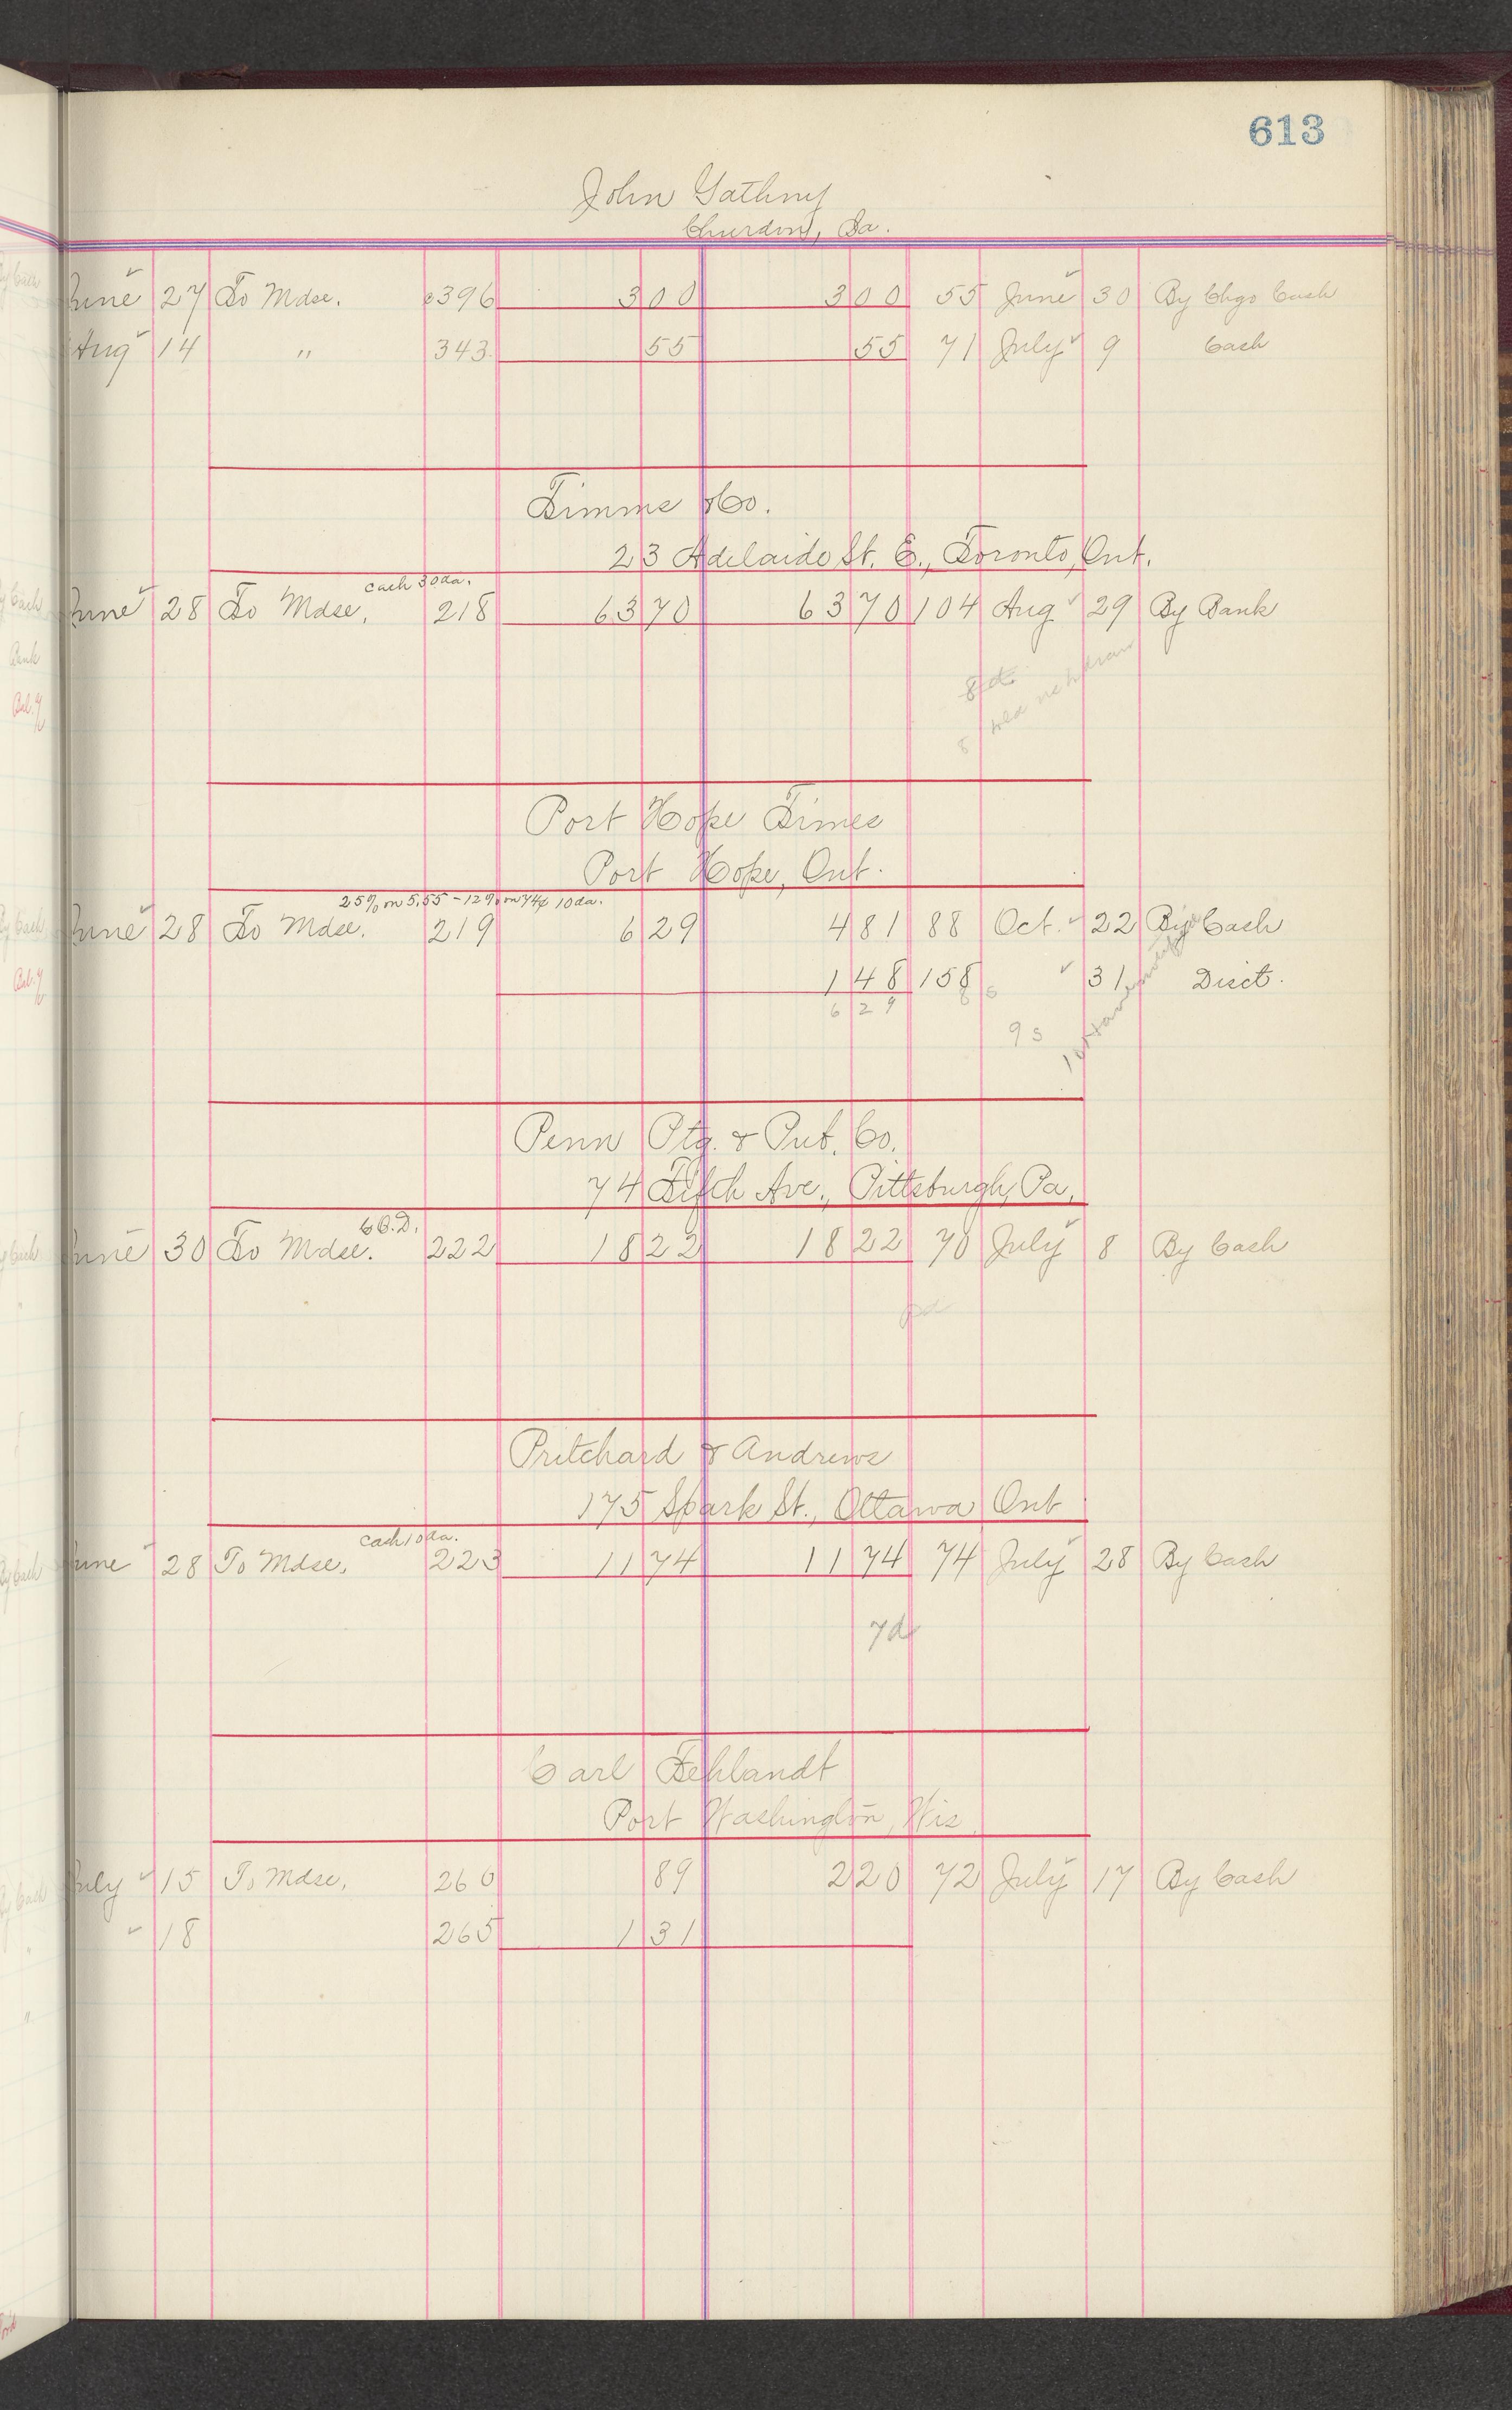 613
John Gathny
Churdan, Ia.
June 27 To Mdse. c396 3 00 3 00 55 June 30 By Chgo Cash
Aug 14 " 343 55 55 71 July 9 Cash
Timms & Co.
23 Adelaide St. E., Toronto, Ont.
cash 30 da.
June 28 To Mdse. 218 63 70 63 70 104 Aug 29 By Bank
Port Hope Times
Port Hope, Ont.
25% on 5.55 - 12% on 74¢ 10 da.
June 28 To Mdse. 219 6 29 4 81 88 Oct. 22 By Cash
1 48 158 31 Disct.
6 29
Penn Ptg. & Pub. Co.
74 Fifth Ave., Pittsburgh, Pa.
C.O.D.
June 30 To Mdse. 222 18 22 18 22 70 July 8 By Cash
pd
Pritchard & Andrews
175 Spark St., Ottawa Ont
cash 10 da.
June 28 To Mdse. 223 11 74 11 74 74 July 28 By Cash
7d
Carl Fehlandt
Port Washington, Wis
July 15 To Mdse. 260 89 2 20 72 July 17 By Cash
18 265 1 31